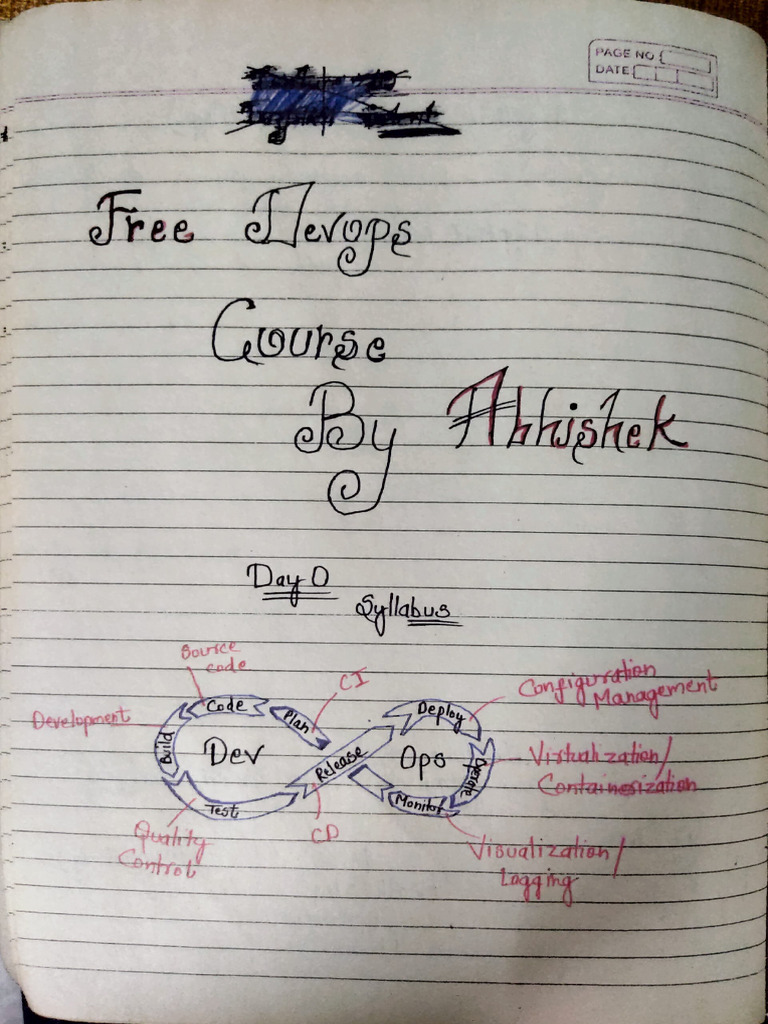 PAGE NO
DATE
Free Devops
Course
By Abhishek
Day 0
Syllabus
Source
code
CI
Configuration
Management
Development
Code
Plan
Deploy
Build
Dev
Release
Ops
Operate
Virtualization/
Containerization
Test
Monitor
Quality
Control
CD
Visualization/
Logging